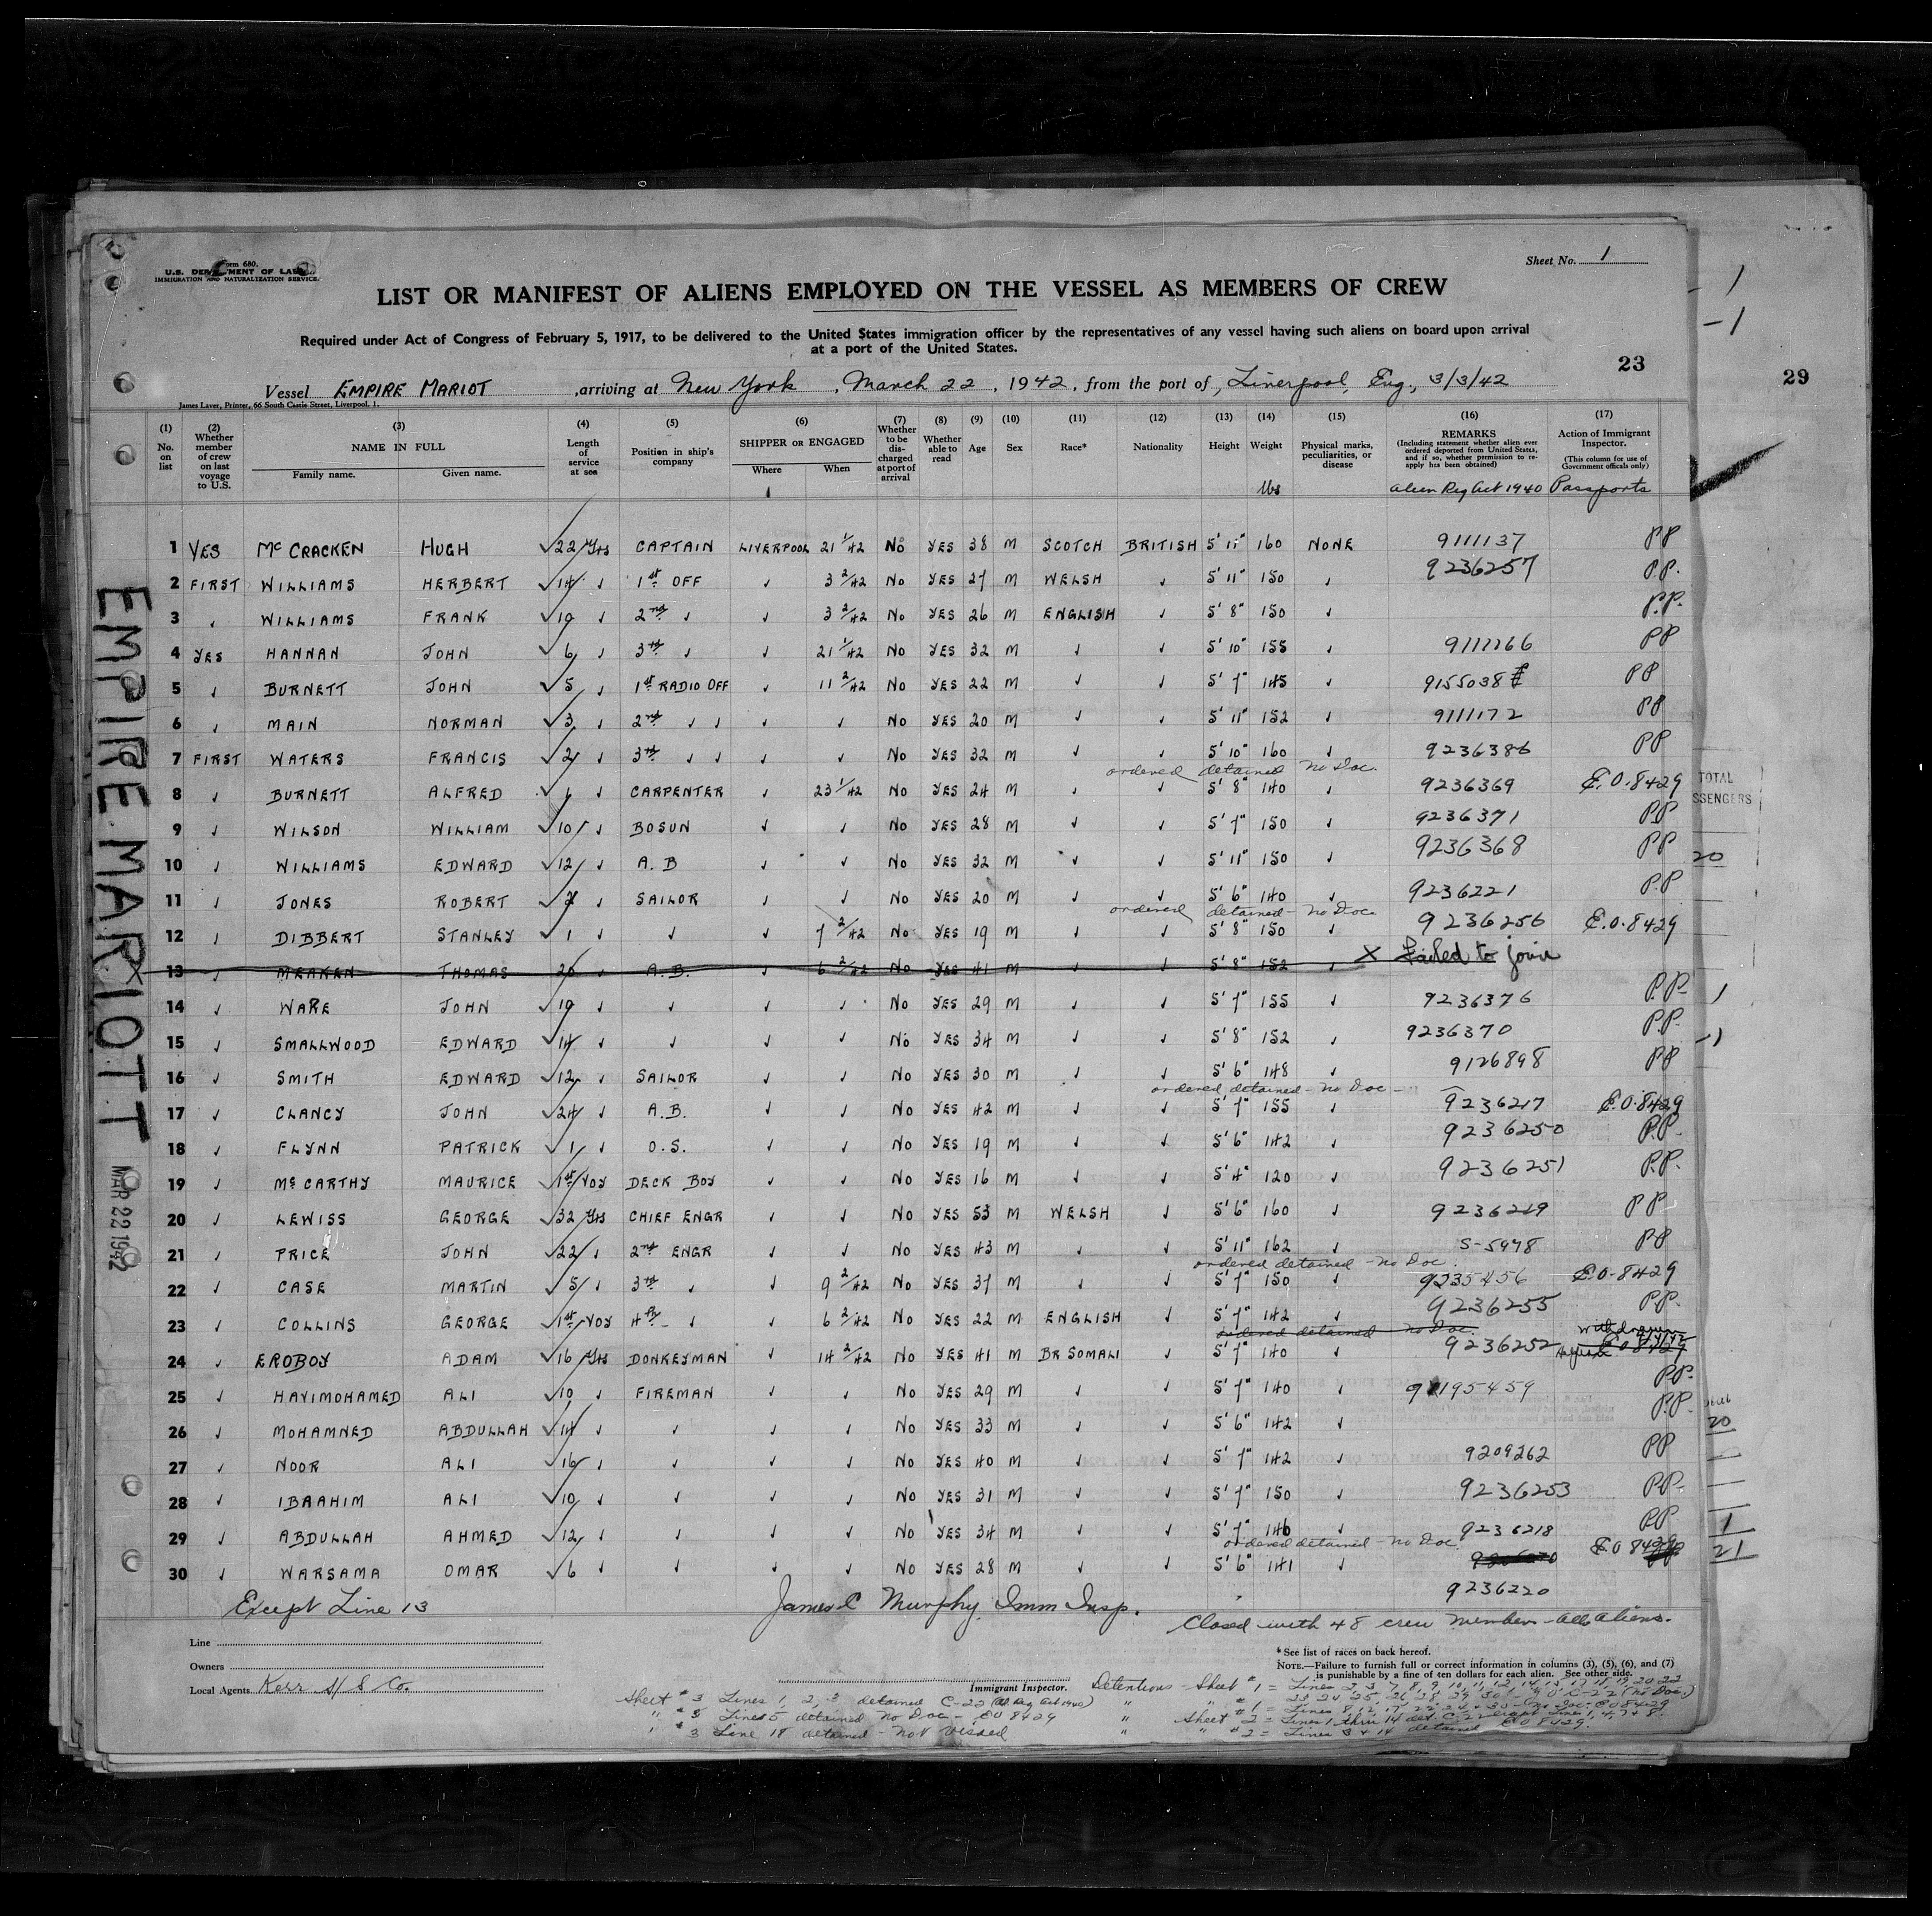 Form 680.
U.S. DEPARTMENT OF LABOR
IMMIGRATION AND NATURALIZATION SERVICE.
Sheet No. 1
LIST OR MANIFEST OF ALIENS EMPLOYED ON THE VESSEL AS MEMBERS OF CREW
Required under Act of Congress of February 5, 1917, to be delivered to the United States immigration officer by the representatives of any vessel having such aliens on board upon arrival
at a port of the United States.
23
29
Vessel EMPIRE MARIOT, arriving at New York, March 22, 1942, from the port of, Liverpool, Eng., 3/3/42
James Laver, Printer, 66 South Castle Street, Liverpool. 1.
(1) No. on list (2) Whether member of crew on last voyage to U.S. (3) NAME IN FULL Family name. Given name. (4) Length of service at sea (5) Position in ship's company (6) SHIPPER OR ENGAGED Where When (7) Whether to be discharged at port of arrival (8) Whether able to read (9) Age (10) Sex (11) Race* (12) Nationality (13) Height (14) Weight (15) Physical marks, peculiarities, or disease (16) REMARKS (Including statement whether alien ever ordered deported from United States, and if so, whether permission to re-apply has been obtained) (17) Action of Immigrant Inspector. (This column for use of Government officials only)
lbs Alien Reg Act 1940 Passports
1 YES McCRACKEN HUGH ✓ 22 yrs CAPTAIN LIVERPOOL 21 1/42 No YES 38 M SCOTCH BRITISH 5' 11" 160 NONE 9111137 PP
2 FIRST WILLIAMS HERBERT ✓ 14 ✓ 1st OFF ✓ 3 2/42 No YES 27 M WELSH ✓ 5' 11" 150 ✓ 9236257 P.P.
3 ✓ WILLIAMS FRANK ✓ 19 ✓ 2nd ✓ ✓ 3 2/42 No YES 26 M ENGLISH ✓ 5' 8" 150 ✓ P.P.
4 YES HANNAN JOHN ✓ 6 ✓ 3rd ✓ ✓ 21 1/42 No YES 32 M ✓ ✓ 5' 10" 155 ✓ 9111166 PP
5 ✓ BURNETT JOHN ✓ 5 ✓ 1st RADIO OFF ✓ 11 2/42 No YES 22 M ✓ ✓ 5' 7" 145 ✓ 9155038 PP
6 ✓ MAIN NORMAN ✓ 3 ✓ 2nd ✓ ✓ ✓ ✓ No YES 20 M ✓ ✓ 5' 11" 152 ✓ 9111172 PP
7 FIRST WATERS FRANCIS ✓ 2 ✓ 3rd ✓ ✓ ✓ ✓ No YES 32 M ✓ ✓ 5' 10" 160 ✓ 9236386 PP
ordered detained no Doc.
8 ✓ BURNETT ALFRED ✓ 6 ✓ CARPENTER ✓ 23 1/42 No YES 24 M ✓ ✓ 5' 8" 140 ✓ 9236369 E.O. 8429
9 ✓ WILSON WILLIAM ✓ 10 ✓ BOSUN ✓ ✓ No YES 28 M ✓ ✓ 5' 7" 150 ✓ 9236371 PP
10 ✓ WILLIAMS EDWARD ✓ 12 ✓ A.B ✓ ✓ No YES 32 M ✓ ✓ 5' 11" 150 ✓ 9236368 PP
11 ✓ JONES ROBERT ✓ ✓ SAILOR ✓ ✓ No YES 20 M ✓ ✓ 5' 6" 140 ✓ 9236221 P.P
ordered detained - no Doc
12 ✓ DIBBERT STANLEY ✓ 1 ✓ ✓ ✓ 7 2/42 No YES 19 M ✓ ✓ 5' 8" 150 ✓ 9236256 E.O. 8429
13 ✓ MEAKEN THOMAS 26 ✓ A.B. ✓ 6 2/42 No YES 41 M ✓ ✓ 5' 8" 152 ✓ X Failed to join
14 ✓ WARE JOHN ✓ 19 ✓ ✓ ✓ ✓ No YES 29 M ✓ ✓ 5' 7" 155 ✓ 9236376 P.P.
15 ✓ SMALLWOOD EDWARD ✓ 14 ✓ ✓ ✓ ✓ No YES 34 M ✓ ✓ 5' 8" 152 ✓ 9236370 P.P.
16 ✓ SMITH EDWARD ✓ 12 ✓ SAILOR ✓ ✓ No YES 30 M ✓ ✓ 5' 6" 148 ✓ 9126898 PP
ordered detained - no Doc -
17 ✓ CLANCY JOHN ✓ 24 ✓ A.B. ✓ ✓ No YES 42 M ✓ ✓ 5' 7" 155 ✓ 9236217 E.O. 8429
18 ✓ FLYNN PATRICK ✓ 1 ✓ O.S. ✓ ✓ No YES 19 M ✓ ✓ 5' 6" 142 ✓ 9236250 P.P.
19 ✓ McCARTHY MAURICE ✓ 1st VOY DECK BOY ✓ ✓ No YES 16 M ✓ ✓ 5' 4" 120 ✓ 9236251 P.P.
20 ✓ LEWISS GEORGE ✓ 32 yrs CHIEF ENGR ✓ ✓ No YES 53 M WELSH ✓ 5' 6" 160 ✓ 9236219 PP
21 ✓ PRICE JOHN ✓ 22 ✓ 2nd ENGR ✓ ✓ No YES 43 M ✓ ✓ 5' 11" 162 ✓ S-5978 PP
ordered detained - no Doc.
22 ✓ CASE MARTIN ✓ 5 ✓ 3rd ✓ ✓ 9 2/42 No YES 37 M ✓ ✓ 5' 7" 150 ✓ 9235456 E.O. 8429
23 ✓ COLLINS GEORGE ✓ 1st VOY 4th ✓ ✓ 6 2/42 No YES 22 M ENGLISH ✓ 5' 7" 142 ✓ 9236255 P.P.
ordered detained no Doc. withdrawn
24 ✓ EROBOY ADAM ✓ 16 yrs DONKEYMAN ✓ 14 2/42 No YES 41 M BR SOMALI ✓ 5' 7" 140 ✓ 9236252 E.O 8429
25 ✓ HAYIMOHAMED ALI ✓ 10 ✓ FIREMAN ✓ ✓ No YES 29 M ✓ ✓ 5' 7" 140 ✓ 9195459 P.P.
26 ✓ MOHAMNED ABDULLAH ✓ 14 ✓ ✓ ✓ ✓ No YES 33 M ✓ ✓ 5' 6" 142 ✓ P.P.
27 ✓ NOOR ALI ✓ 16 ✓ ✓ ✓ ✓ No YES 40 M ✓ ✓ 5' 7" 142 ✓ 9209262 PP
28 ✓ IBRAHIM ALI ✓ 10 ✓ ✓ ✓ ✓ No YES 31 M ✓ ✓ 5' 7" 150 ✓ 9236253 PP.
29 ✓ ABDULLAH AHMED ✓ 12 ✓ ✓ ✓ ✓ No YES 34 M ✓ ✓ 5' 7" 146 ✓ 9236218 PP
ordered detained - no Doc.
30 ✓ WARSAMA OMAR ✓ 6 ✓ ✓ ✓ ✓ No YES 28 M ✓ ✓ 5' 6" 141 ✓ E.O 8429
9236220
Except Line 13
James C Murphy Imm Insp.
Closed with 48 crew members - all aliens.
Line
Owners
Local Agents Kerr S/S Co.
Immigrant Inspector.
* See list of races on back hereof.
NOTE.—Failure to furnish full or correct information in columns (3), (5), (6), and (7)
is punishable by a fine of ten dollars for each alien. See other side.
Sheet #3 Lines 1, 2, 3 detained C-22 (Al. Reg Act 1940)
" #3 Lines 5 detained no Doc - EO 8429
" #3 Line 18 detained - not vissed
Detentions - Sheet #1 = Lines 2, 3, 7, 8, 9, 10, 11, 12, 14, 15, 17, 18, 19, 20, 22
Sheet #2 = Lines 1 thru 14 det. C-22 except Lines 1, 4, 7 + 8
" #2 = Lines 3 + 14 detained EO 8429.
EMPIRE MARIOTT
MAR 22 1942
TOTAL
SSENGERS
20
20
1
21